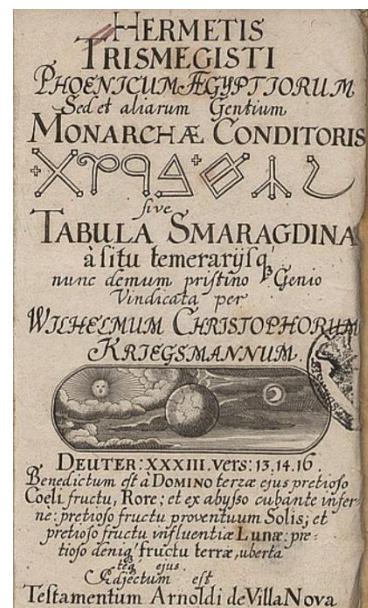 HERMETIS
TRISMEGISTI
PHOENICUM ÆGYPTIORUM
Sed et aliarum Gentium
MONARCHÆ CONDITORIS
sive
TABULA SMARAGDINA
à situ temerarijsq̃
nunc demum pristino Genio
Vindicata per
WILHELMUM CHRISTOPHORUM
KRIEGSMANNUM.
DEUTER: XXXIII. vers: 13. 14. 16.
Benedictum est à DOMINO terræ ejus pretioso
Coeli fructu, Rore; et ex abysso cubante infer-
nè: pretioso fructu proventuum Solis; et
pretioso fructu influentiæ Lunæ: pre-
tioso deniq̃ fructu terræ, uberta
teq̃ ejus.
Adjectum est
Testamentum Arnoldi de Villa Nova